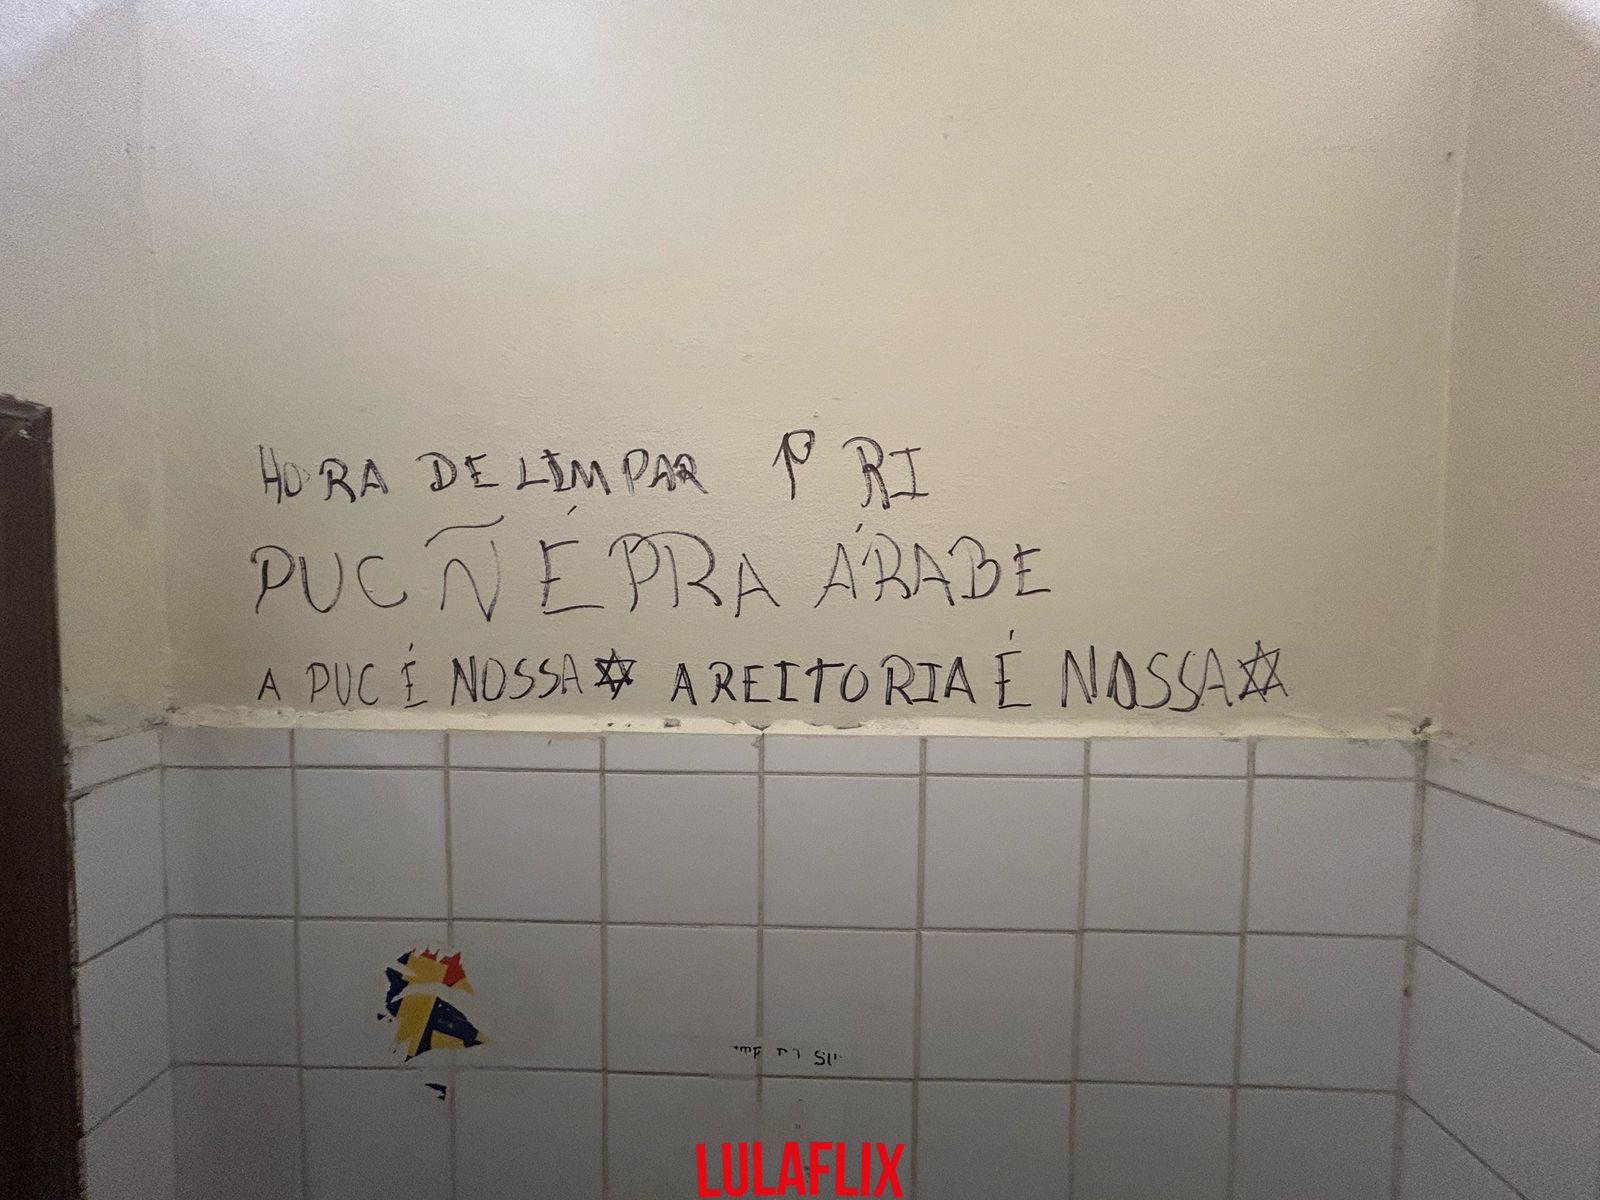 HORA DE LIMPAR P RI
PUC Ñ É PRA ÁRABE
A PUC É NOSSA✡ A REITORIA É NOSSA✡
LULAFLIX